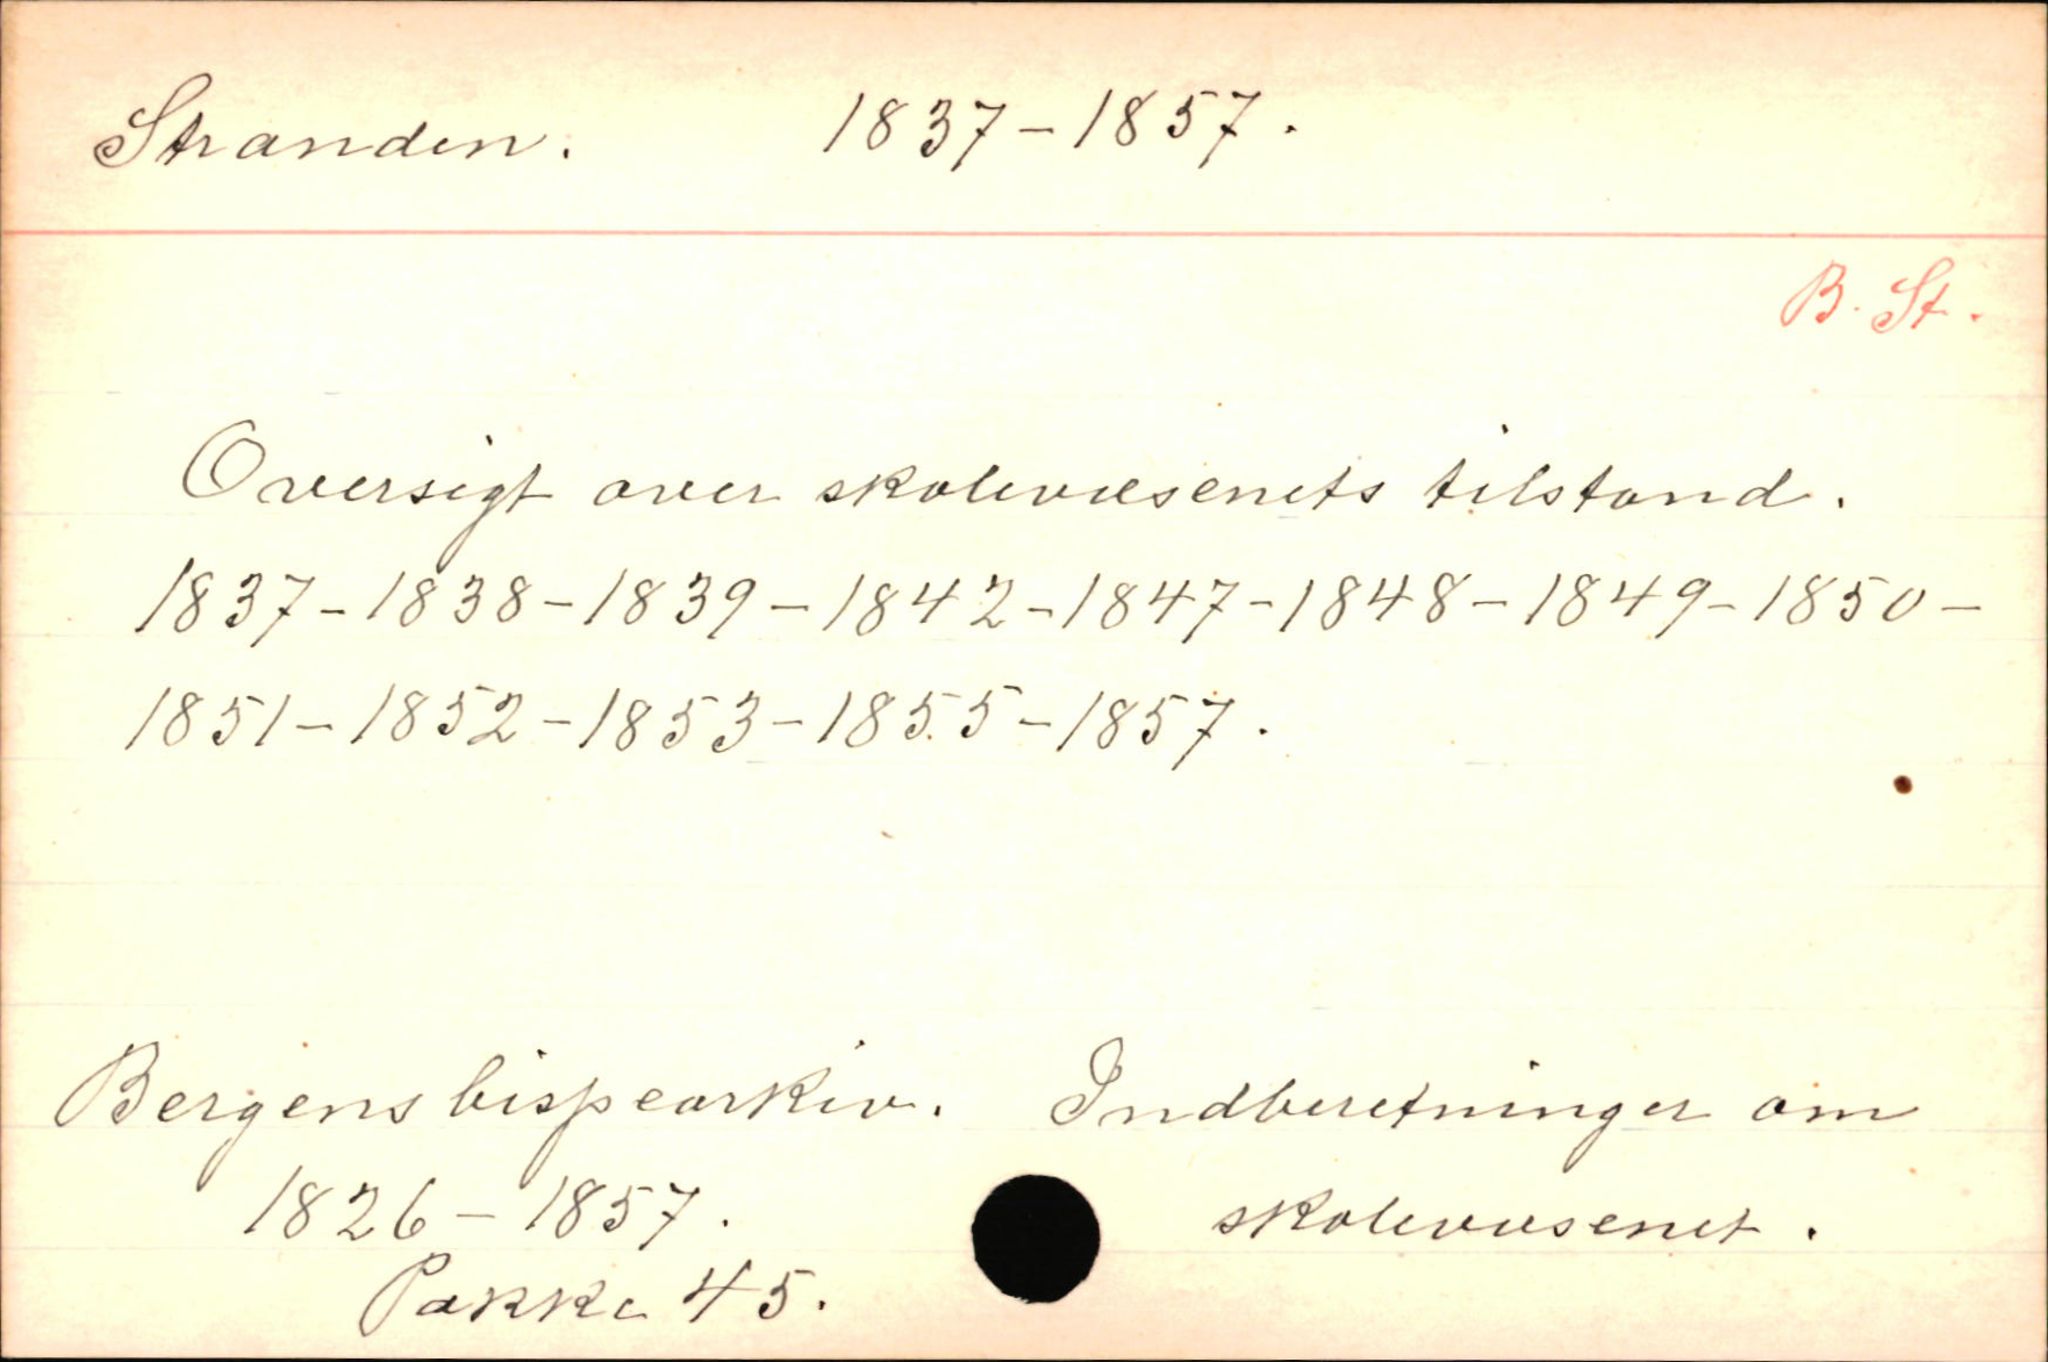 Stranden. 1837-1857.
B. St.
Oversigt over skolevæsenets tilstand.
1837-1838-1839-1842-1847-1848-1849-1850-
1851-1852-1853-1855-1857.
Bergens bispearkiv. Indberetninger om
1826-1857. skolevæsenet.
Pakke 45.